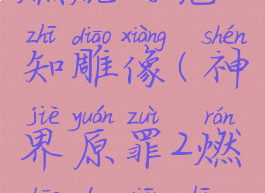 zhī diāo xiàng shén
知雕像(神
jiè yuán zuì rán
界原罪2燃